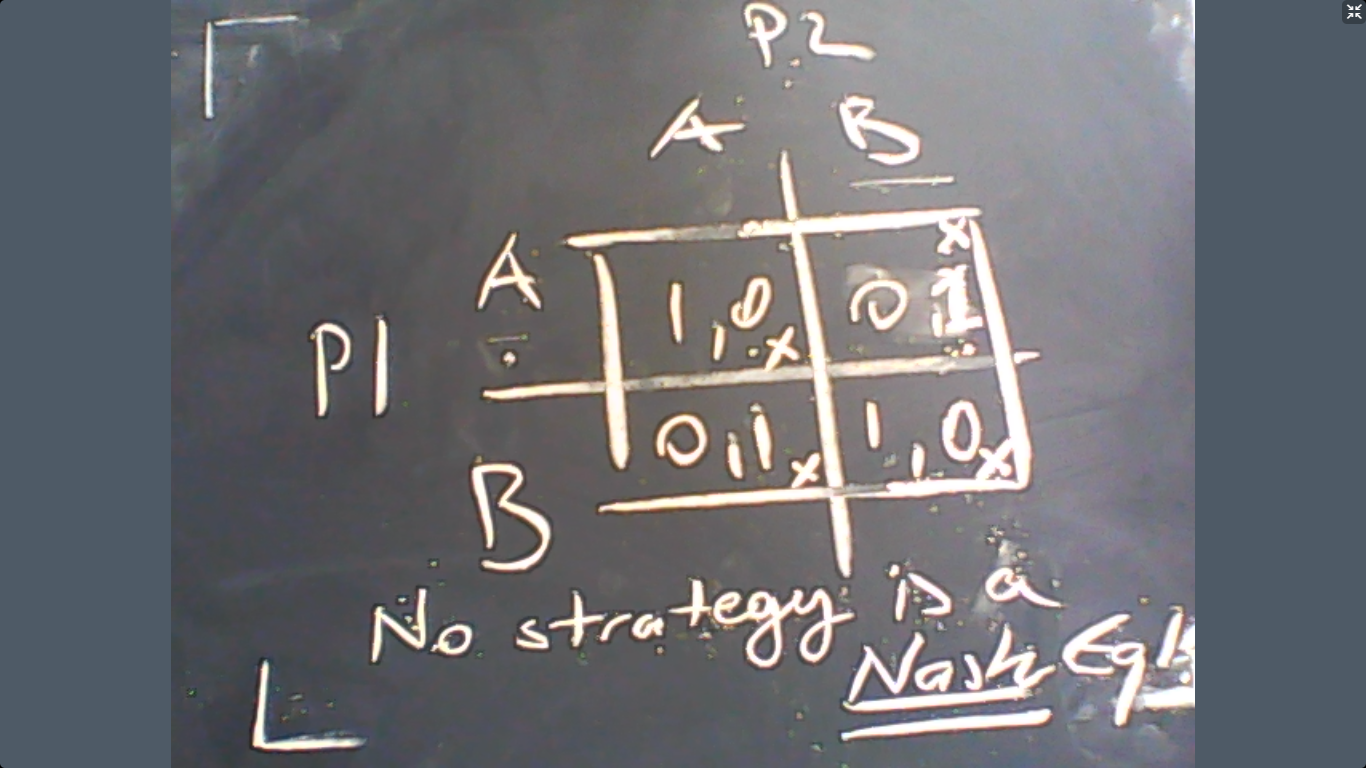 P2
A B
A 1,0 x 0,1 x
P1
B 0,1 x 1,0 x
No strategy is a
Nash